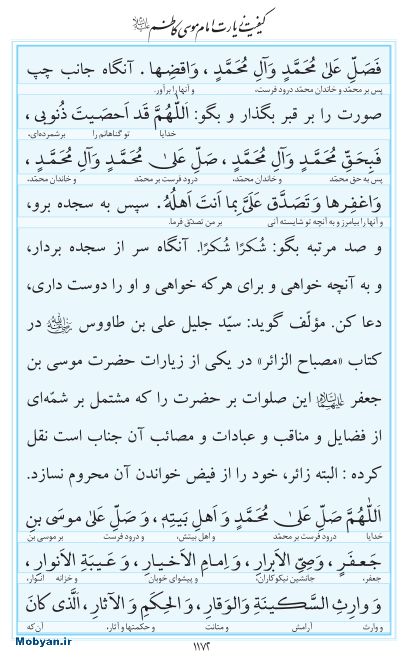 کیفیت زیارت امام موسی کاظم علیه‌السلام
فَصَلِّ عَلیٰ مُحَمَّدٍ وَآلِ مُحَمَّدٍ، وَاقضِها. آنگاه جانب چپ
پس بر محمّد و خاندان محمّد درود فرست، و آنها را برآور.
صورت را بر قبر بگذار و بگو: اَللّهُمَّ قَد اَحصَیتَ ذُنوبی،
خدایا تو گناهانم را برشمرده‌ای،
فَبِحَقِّ مُحَمَّدٍ وَآلِ مُحَمَّدٍ، صَلِّ عَلیٰ مُحَمَّدٍ وَآلِ مُحَمَّدٍ،
پس به حق محمّد و خاندان محمّد، درود فرست بر محمّد و خاندان محمّد،
وَاغفِرها وَتَصَدَّق عَلَیَّ بِما اَنتَ اَهلُهُ. سپس به سجده برو،
و آنها را بیامرز و به آنچه تو شایسته آنی بر من تصدّق فرما.
و صد مرتبه بگو: شُکرًا شُکرًا. آنگاه سر از سجده بردار،
و به آنچه خواهی و برای هرکه خواهی و او را دوست داری،
دعا کن. مؤلّف گوید: سیّد جلیل علی بن طاووس در
کتاب «مصباح الزائر» در یکی از زیارات حضرت موسی بن
جعفر این صلوات بر حضرت را که مشتمل بر شمّه‌ای
از فضایل و مناقب و عبادات و مصائب آن جناب است نقل
کرده: البته زائر، خود را از فیض خواندن آن محروم نسازد.
اَللّٰهُمَّ صَلِّ عَلیٰ مُحَمَّدٍ وَاَهلِ بَیتِهِ، وَصَلِّ عَلیٰ موسَی بنِ
خدایا درود فرست بر محمّد و اهل بیتش، و درود فرست بر موسی بن
جَعفَرٍ، وَصِیِّ الاَبرارِ، وَاِمامِ الاَخیارِ، وَعَیبَةِ الاَنوارِ،
جعفر، جانشین نیکوکاران، و پیشوای خوبان و خزانه انوار،
وَوارِثِ السَّکینَةِ وَالوَقارِ، وَالحِکَمِ وَالآثارِ، اَلَّذی کانَ
و وارث آرامش و متانت و حکمتها و آثار، آن که
Mobyan.ir
۱۱۷۲